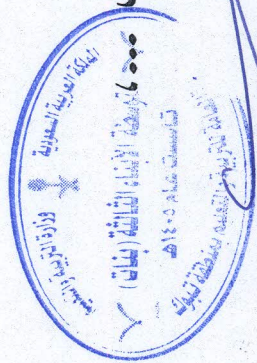 المملكة العربية السعودية
وزارة التربية والتعليم
متوسطة الأبناء الثالثة (بنات)
تأسست عام ١٤٠٥هـ
للتربية والتعليم بمنطقة تبوك